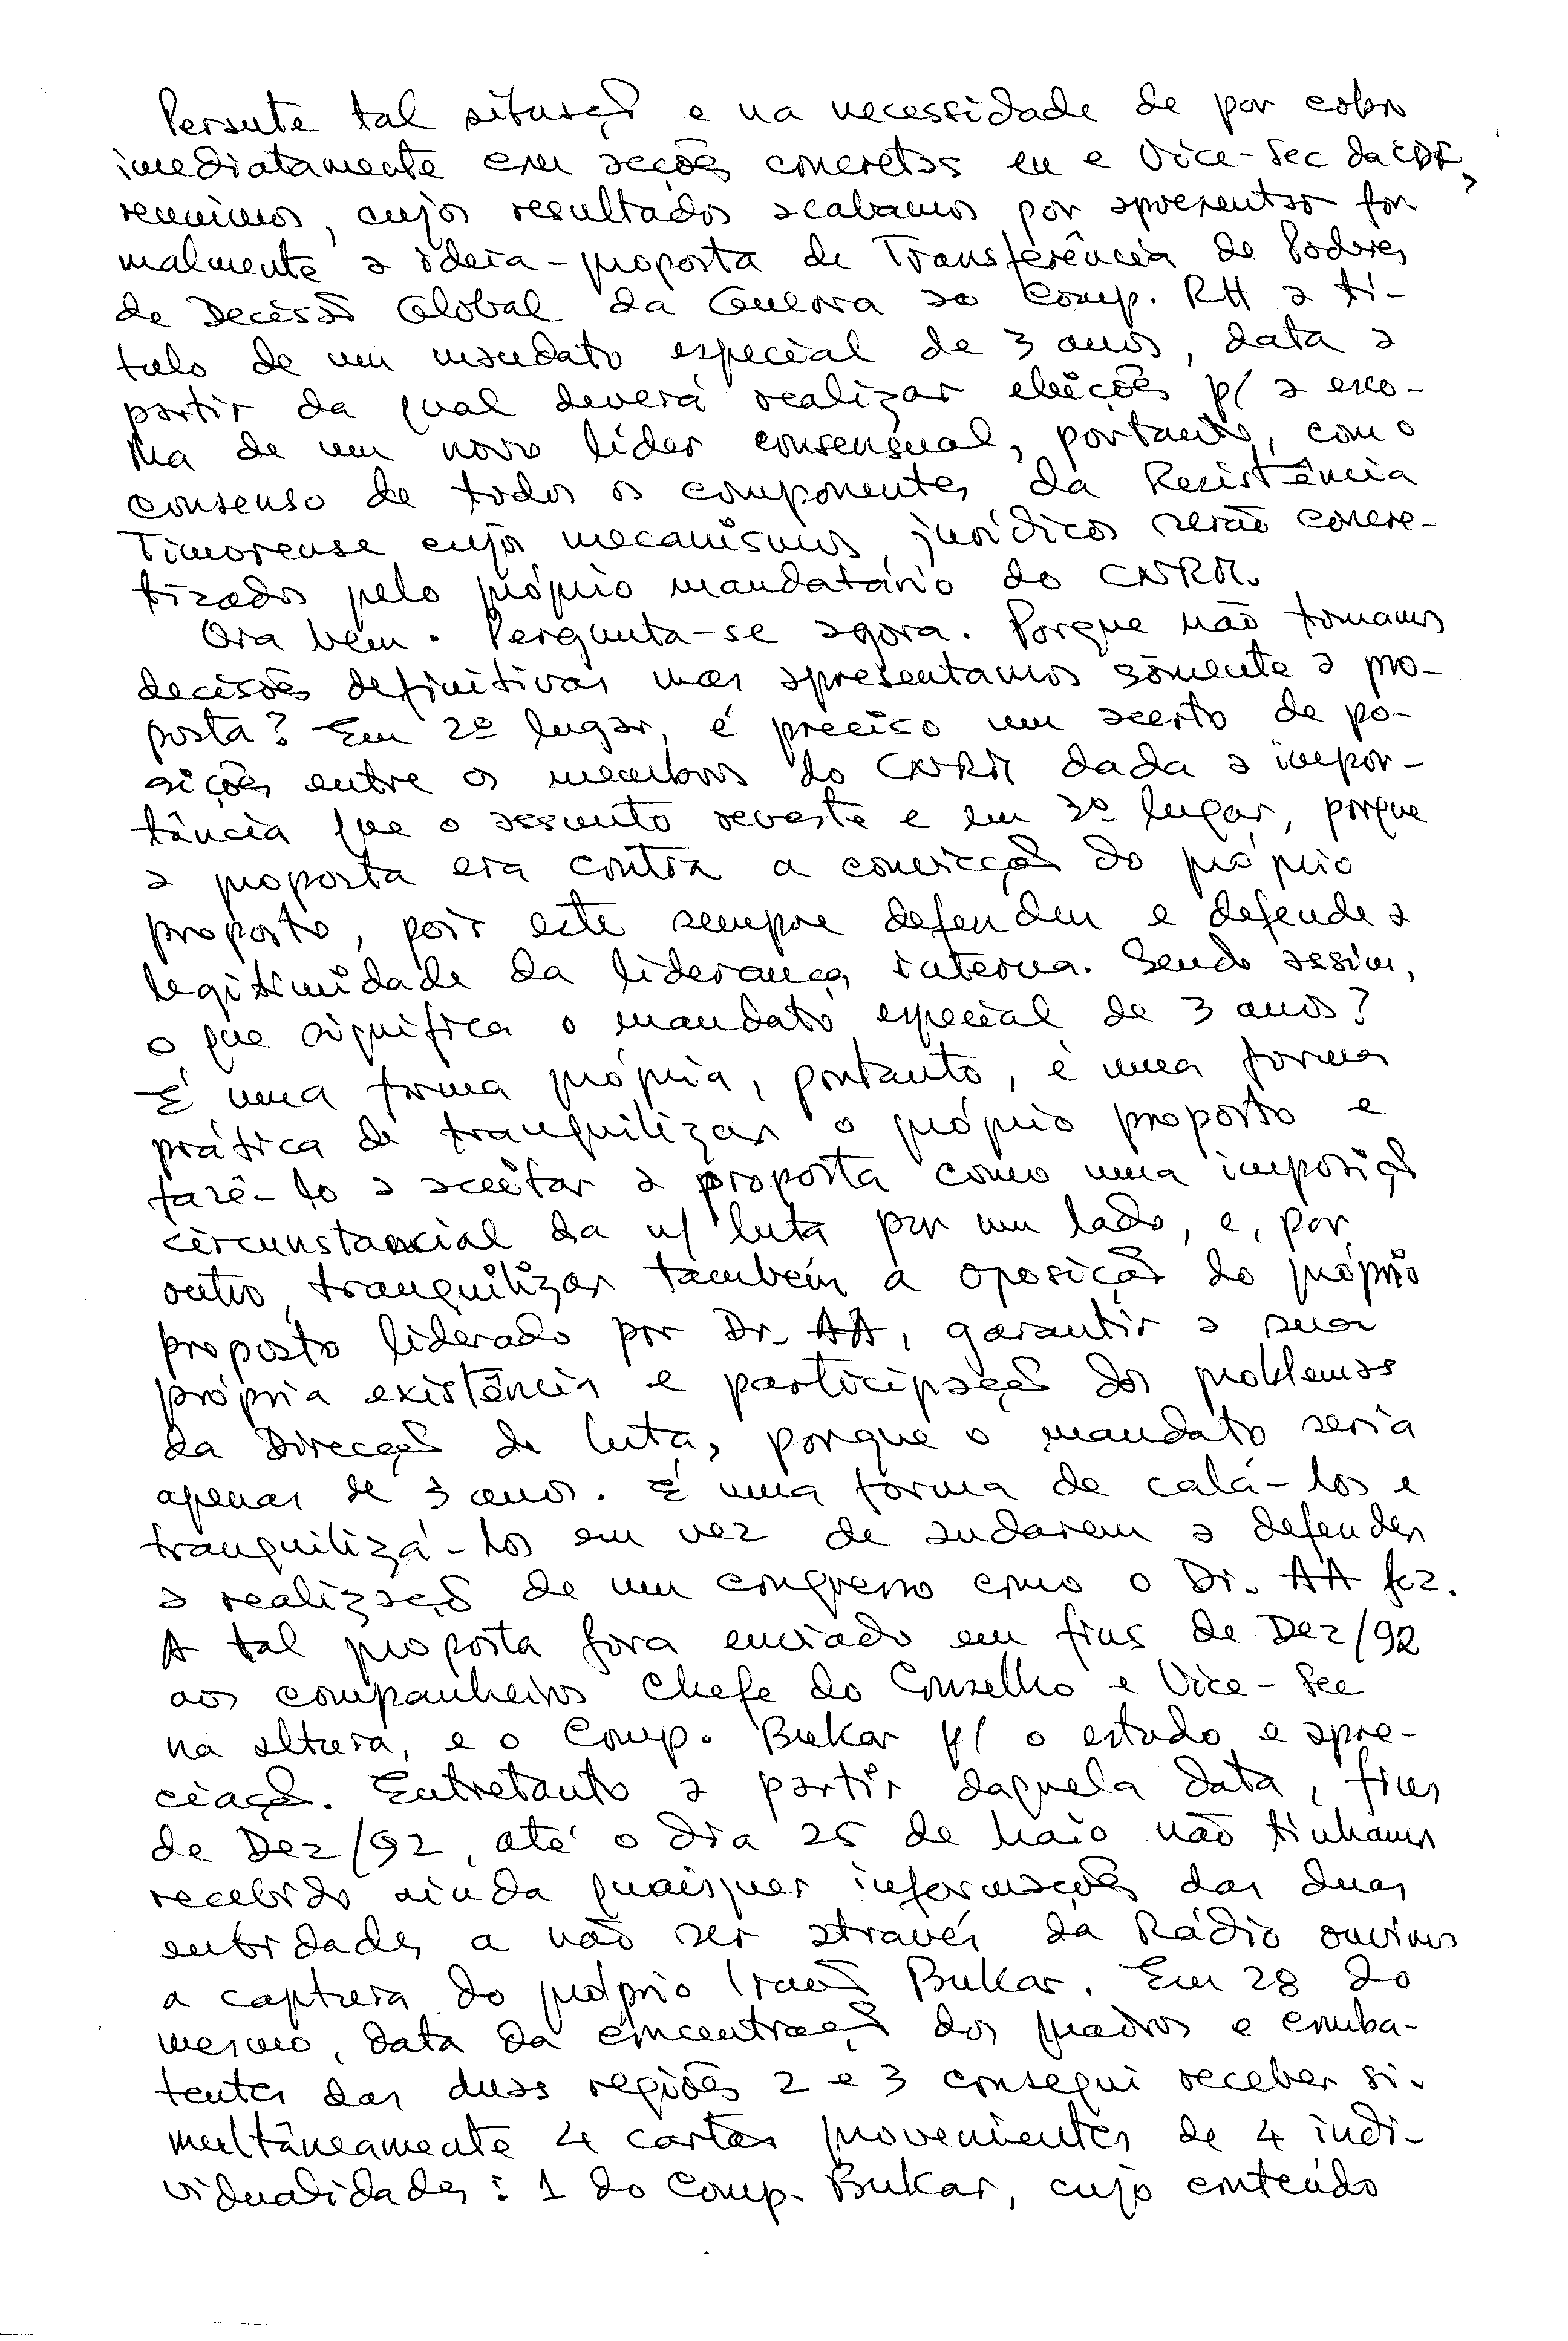 Perante tal situação e na necessidade de por cobro
imediatamente em acções concretas eu e Vice-Sec da CDF,
reunimos, cujos resultados acabamos por apresentar for-
malmente a ideia-proposta de Transferência de Poderes
de Decisão Global da Guerra ao Comp. RH a tí-
tulo de um mandato especial de 3 anos, data a
partir da qual deverá realizar eleições p/ a esco-
lha de um novo líder consensual, portanto, com o
consenso de todos os componentes da Resistência
Timorense cujos mecanismos jurídicos serão concre-
tizados pelo próprio mandatário do CNRM.
Ora bem. Pergunta-se agora. Porque não tomamos
decisões definitivas mas apresentamos sòmente a pro-
posta? Em 2º lugar, é preciso um acerto de po-
sições entre os membros do CNRM dada a impor-
tância que o assunto reveste e em 3º lugar, porque
a proposta era contra a convicção do próprio
proposto, pois este sempre defendeu e defende a
legitimidade da liderança interna. Sendo assim,
o que significa o mandato especial de 3 anos?
É uma forma própria, portanto, é uma forma
prática de tranquilizar o próprio proposto e
fazê-lo a aceitar a proposta como uma imposição
circunstancial da n/ luta por um lado, e, por
outro, tranquilizar também a oposição do próprio
proposto liderado por Dr. AA, garantir a sua
própria existência e participação dos problemas
da Direcção de luta, porque o mandato seria
apenas de 3 anos. É uma forma de calá-los e
tranquilizá-los em vez de andarem a defender
a realização de um congresso como o Dr. AA fez.
A tal proposta fora enviado em fins de Dez/92
aos companheiros Chefe do Conselho e Vice-Sec
na altura, e o Comp. Bukar p/ o estudo e apre-
ciação. Entretanto a partir daquela data, fins
de Dez/92, até o dia 25 de Maio não tinhamos
recebido ainda quaisquer informações das duas
entidades a não ser através da Rádio ouvimos
a captura do próprio Irmão Bukar. Em 28 do
mesmo, data da concentração dos quadros e comba-
tentes das duas regiões 2 e 3 consegui receber si-
multâneamente 4 cartas provenientes de 4 indi-
vidualidades: 1 do Comp. Bukar, cujo conteúdo